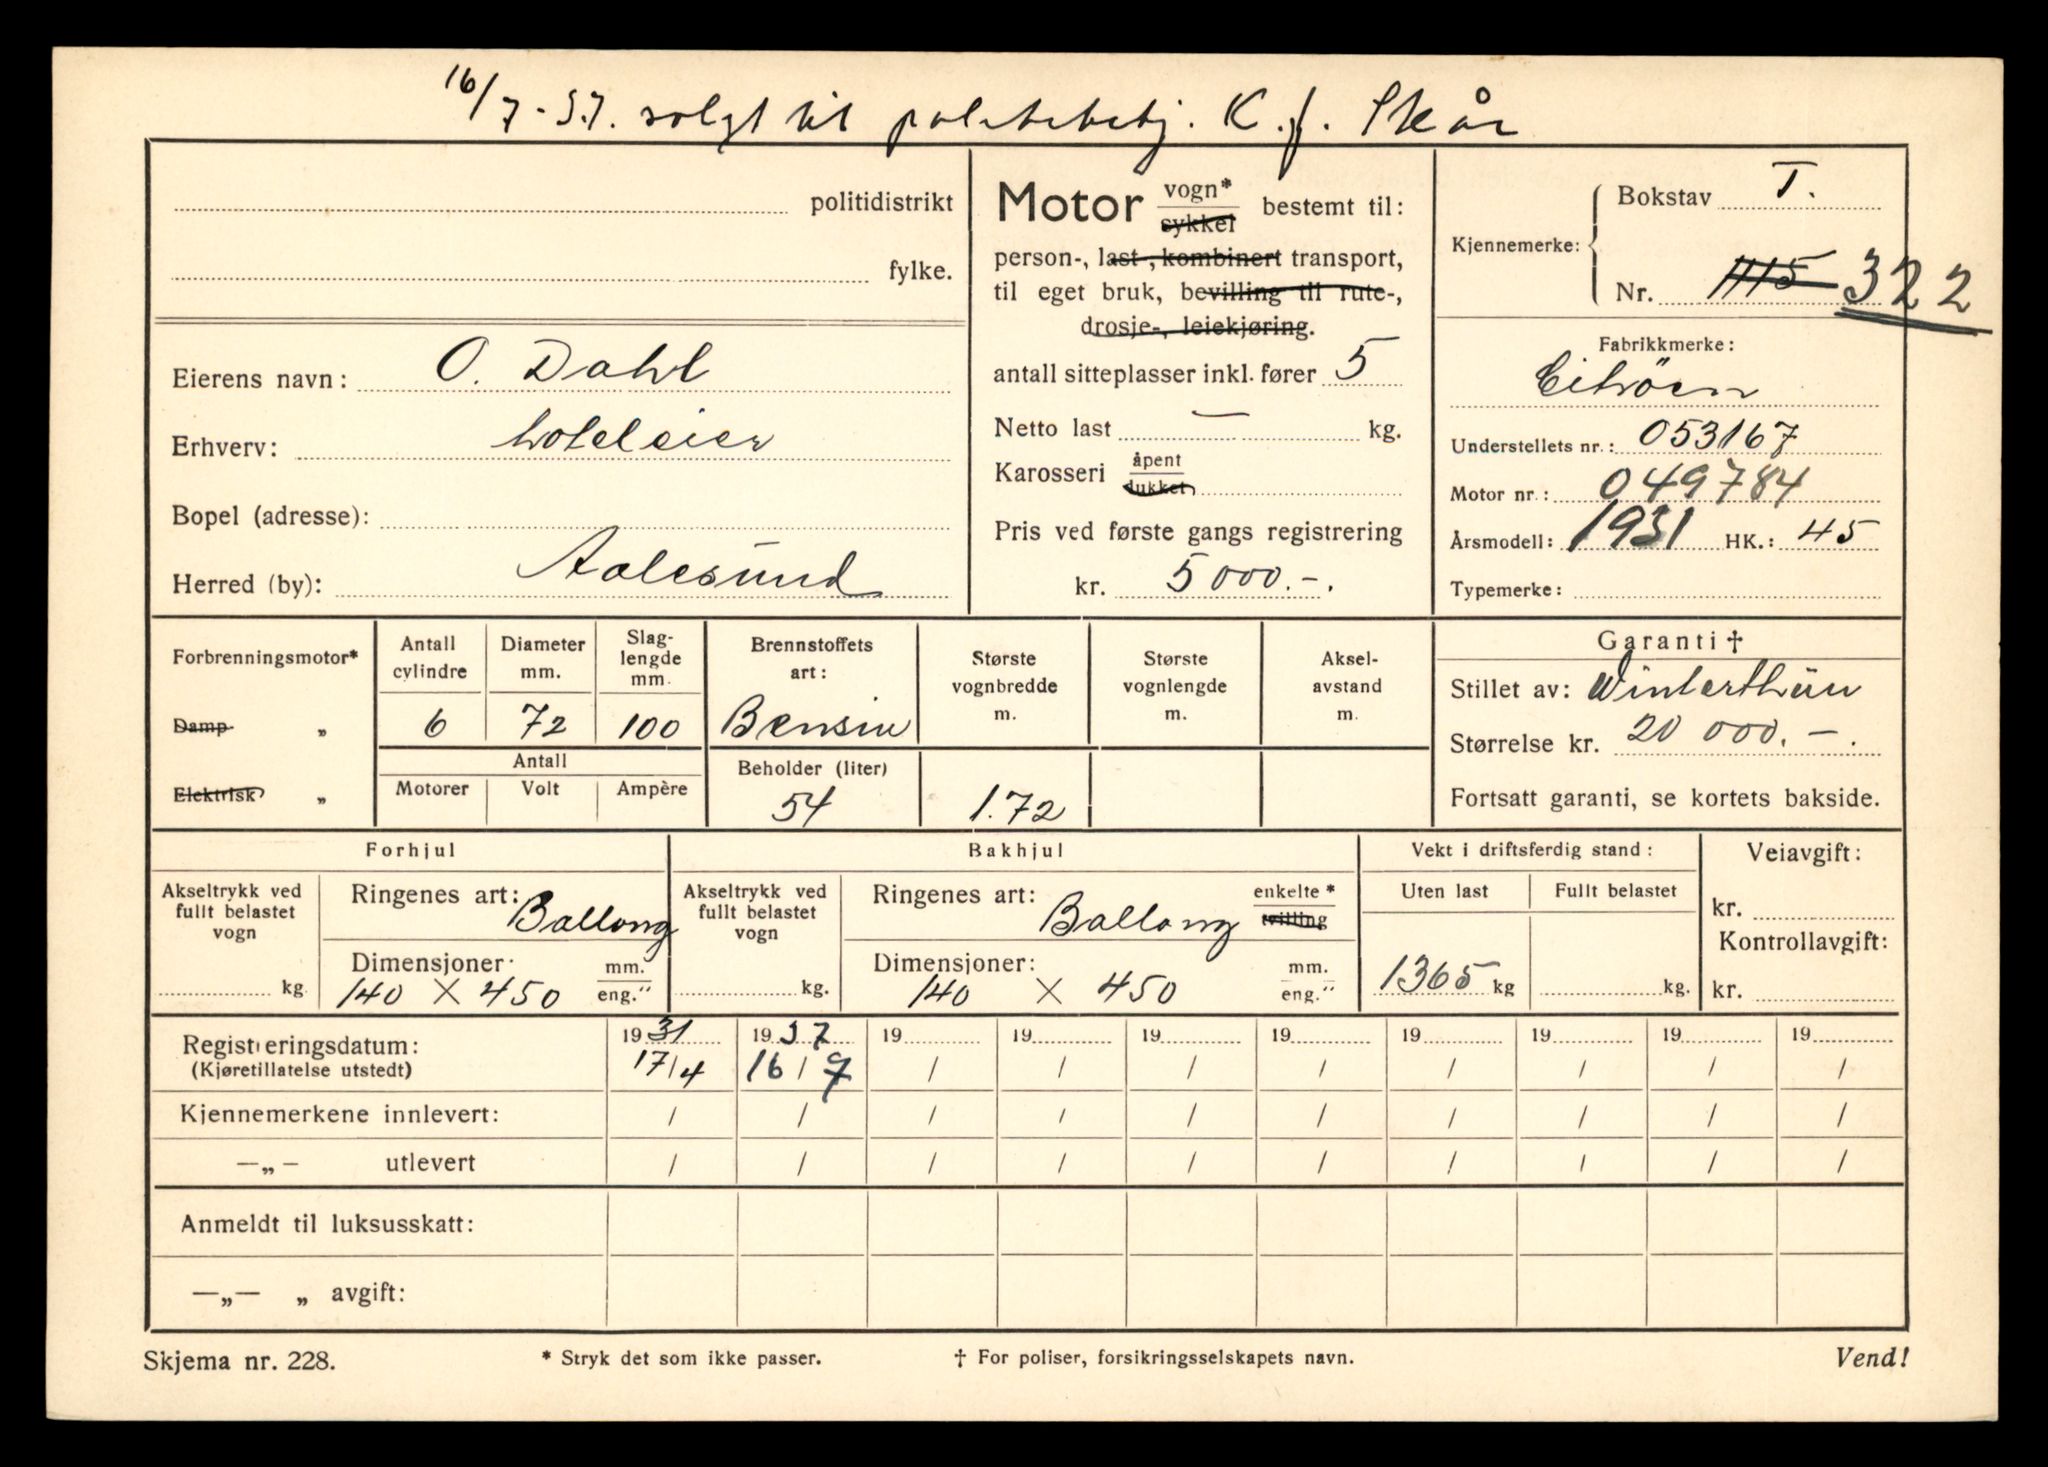 16/7-37. solgt til politibetj. K. J. Skår
politidistrikt
fylke.
Eierens navn: O. Dahl
Erhverv: hoteleier
Bopel (adresse):
Herred (by): Aalesund
Motor vogn* sykkel bestemt til:
person-, last-, kombinert transport,
til eget bruk, bevilling til rute-,
drosje-, leiekjøring.
antall sitteplasser inkl. fører 5
Netto last — kg.
Karosseri åpent lukket
Pris ved første gangs registrering
kr. 5000.-.
Kjennemerke: Bokstav T.
Nr. 1115 322
Fabrikkmerke:
Citröen
Understellets nr.: 053167
Motor nr.: 049784
Årsmodell: 1931 HK.: 45
Typemerke:
Forbrenningsmotor*
Damp „
Elektrisk „
Antall cylindre
6
Diameter mm.
72
Slag-
lengde
mm.
100
Antall
Motorer Volt Ampère
Brennstoffets
art:
Bensin
Beholder (liter)
54
Største
vognbredde
m.
1.72
Største
vognlengde
m.
Aksel-
avstand
m.
Garanti †
Stillet av: Winterthür
Størrelse kr. 20 000.-.
Fortsatt garanti, se kortets bakside.
Forhjul
Akseltrykk ved
fullt belastet
vogn
kg.
Ringenes art: Ballong
Dimensjoner: mm.
140 X 450 eng."
Bakhjul
Akseltrykk ved
fullt belastet
vogn
kg.
Ringenes art: Ballong enkelte* tvilling
Dimensjoner: mm.
140 X 450 eng."
Vekt i driftsferdig stand:
Uten last Fullt belastet
1365 kg kg.
Veiavgift:
kr.
Kontrollavgift:
kr.
Registreringsdatum: 1931 1937 19 19 19 19 19 19 19 19
(Kjøretillatelse utstedt) 17/4 16/7 / / / / / / / /
Kjennemerkene innlevert: / / / / / / / / / /
—„— utlevert / / / / / / / / / /
Anmeldt til luksusskatt:
—„— „ avgift:
Skjema nr. 228. * Stryk det som ikke passer. † For poliser, forsikringsselskapets navn. Vend!